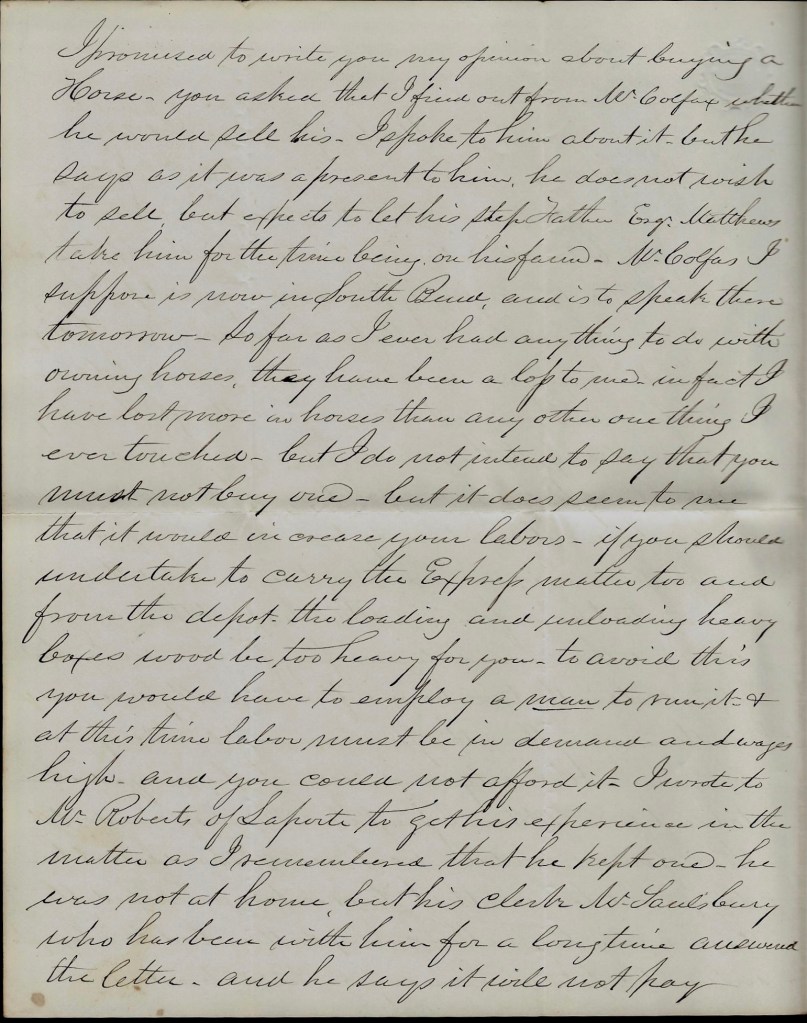 I promised to write you my opinion about buying a
Horse - you asked that I find out from Mr Colfax whether
he would sell his - I spoke to him about it - but he
says as it was a present to him, he does not wish
to sell, but expects to let his step Father Esqr. Matthews
take him for the time being, on his farm - Mr Colfax I
suppose is now in South Bend, and is to speak there
tomorrow - So far as I ever had anything to do with
owning horses, they have been a loss to me - in fact I
have lost more in horses than any other one thing I
ever touched - but I do not intend to say that you
must not buy one - but it does seem to me
that it would increase your labors - if you should
undertake to carry the Express matter too and
from the depot - the loading and unloading heavy
boxes wood be too heavy for you - to avoid this
you would have to employ a man to run it - &
at this time labor must be in demand and wages
high - and you could not afford it - I wrote to
Mr Roberts of Laporte to get his experience in the
matter as I remembered that he kept one - he
was not at home, but his clerk Mr Saulsbury
who has been with him for a long time answered
the letter - and he says it will not pay